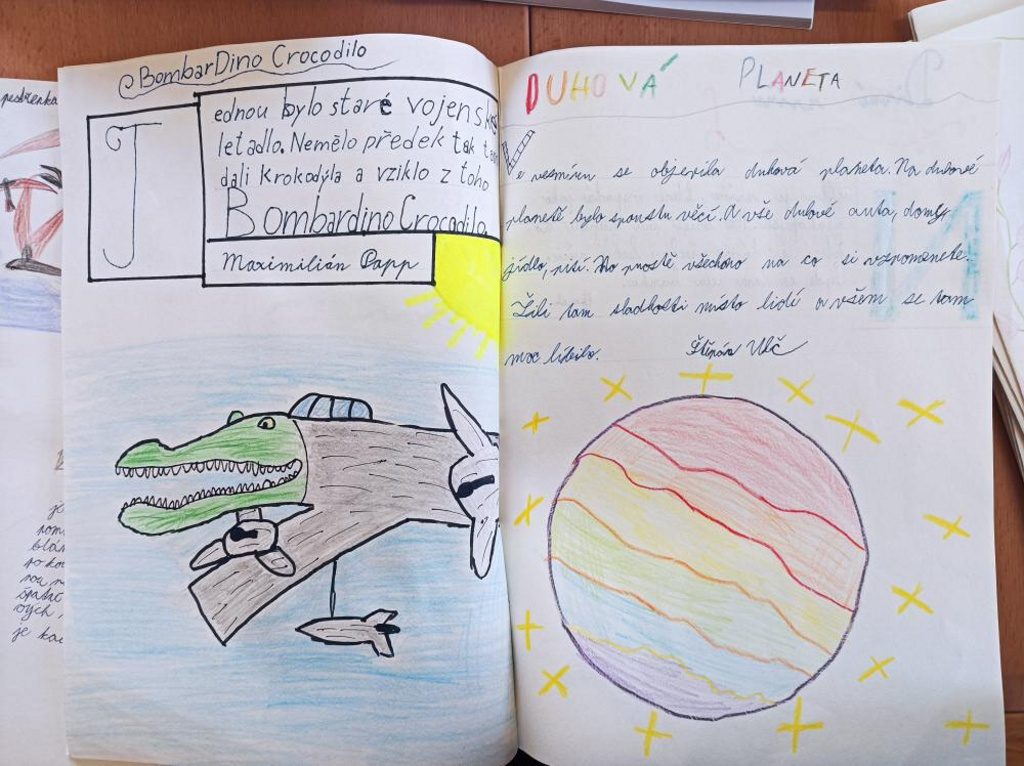 @BombarDino Crocodilo
J
ednou bylo staré vojenské
letadlo. Nemělo předek tak
dali krokodýla a vziklo z toho
Bombardino Crocodilo
Maximilián Papp
DUHOVÁ PLANETA
Ve vesmíru se objevila duhová planeta. Na duhové
planetě bylo spoustu věcí. A vše duhové auta, domy,
jídlo, pití. No prostě všechno na co si vzpomenete.
Žili tam sladkosti místo lidí a všem se tam
moc líbilo. Štěpán Ulč
je